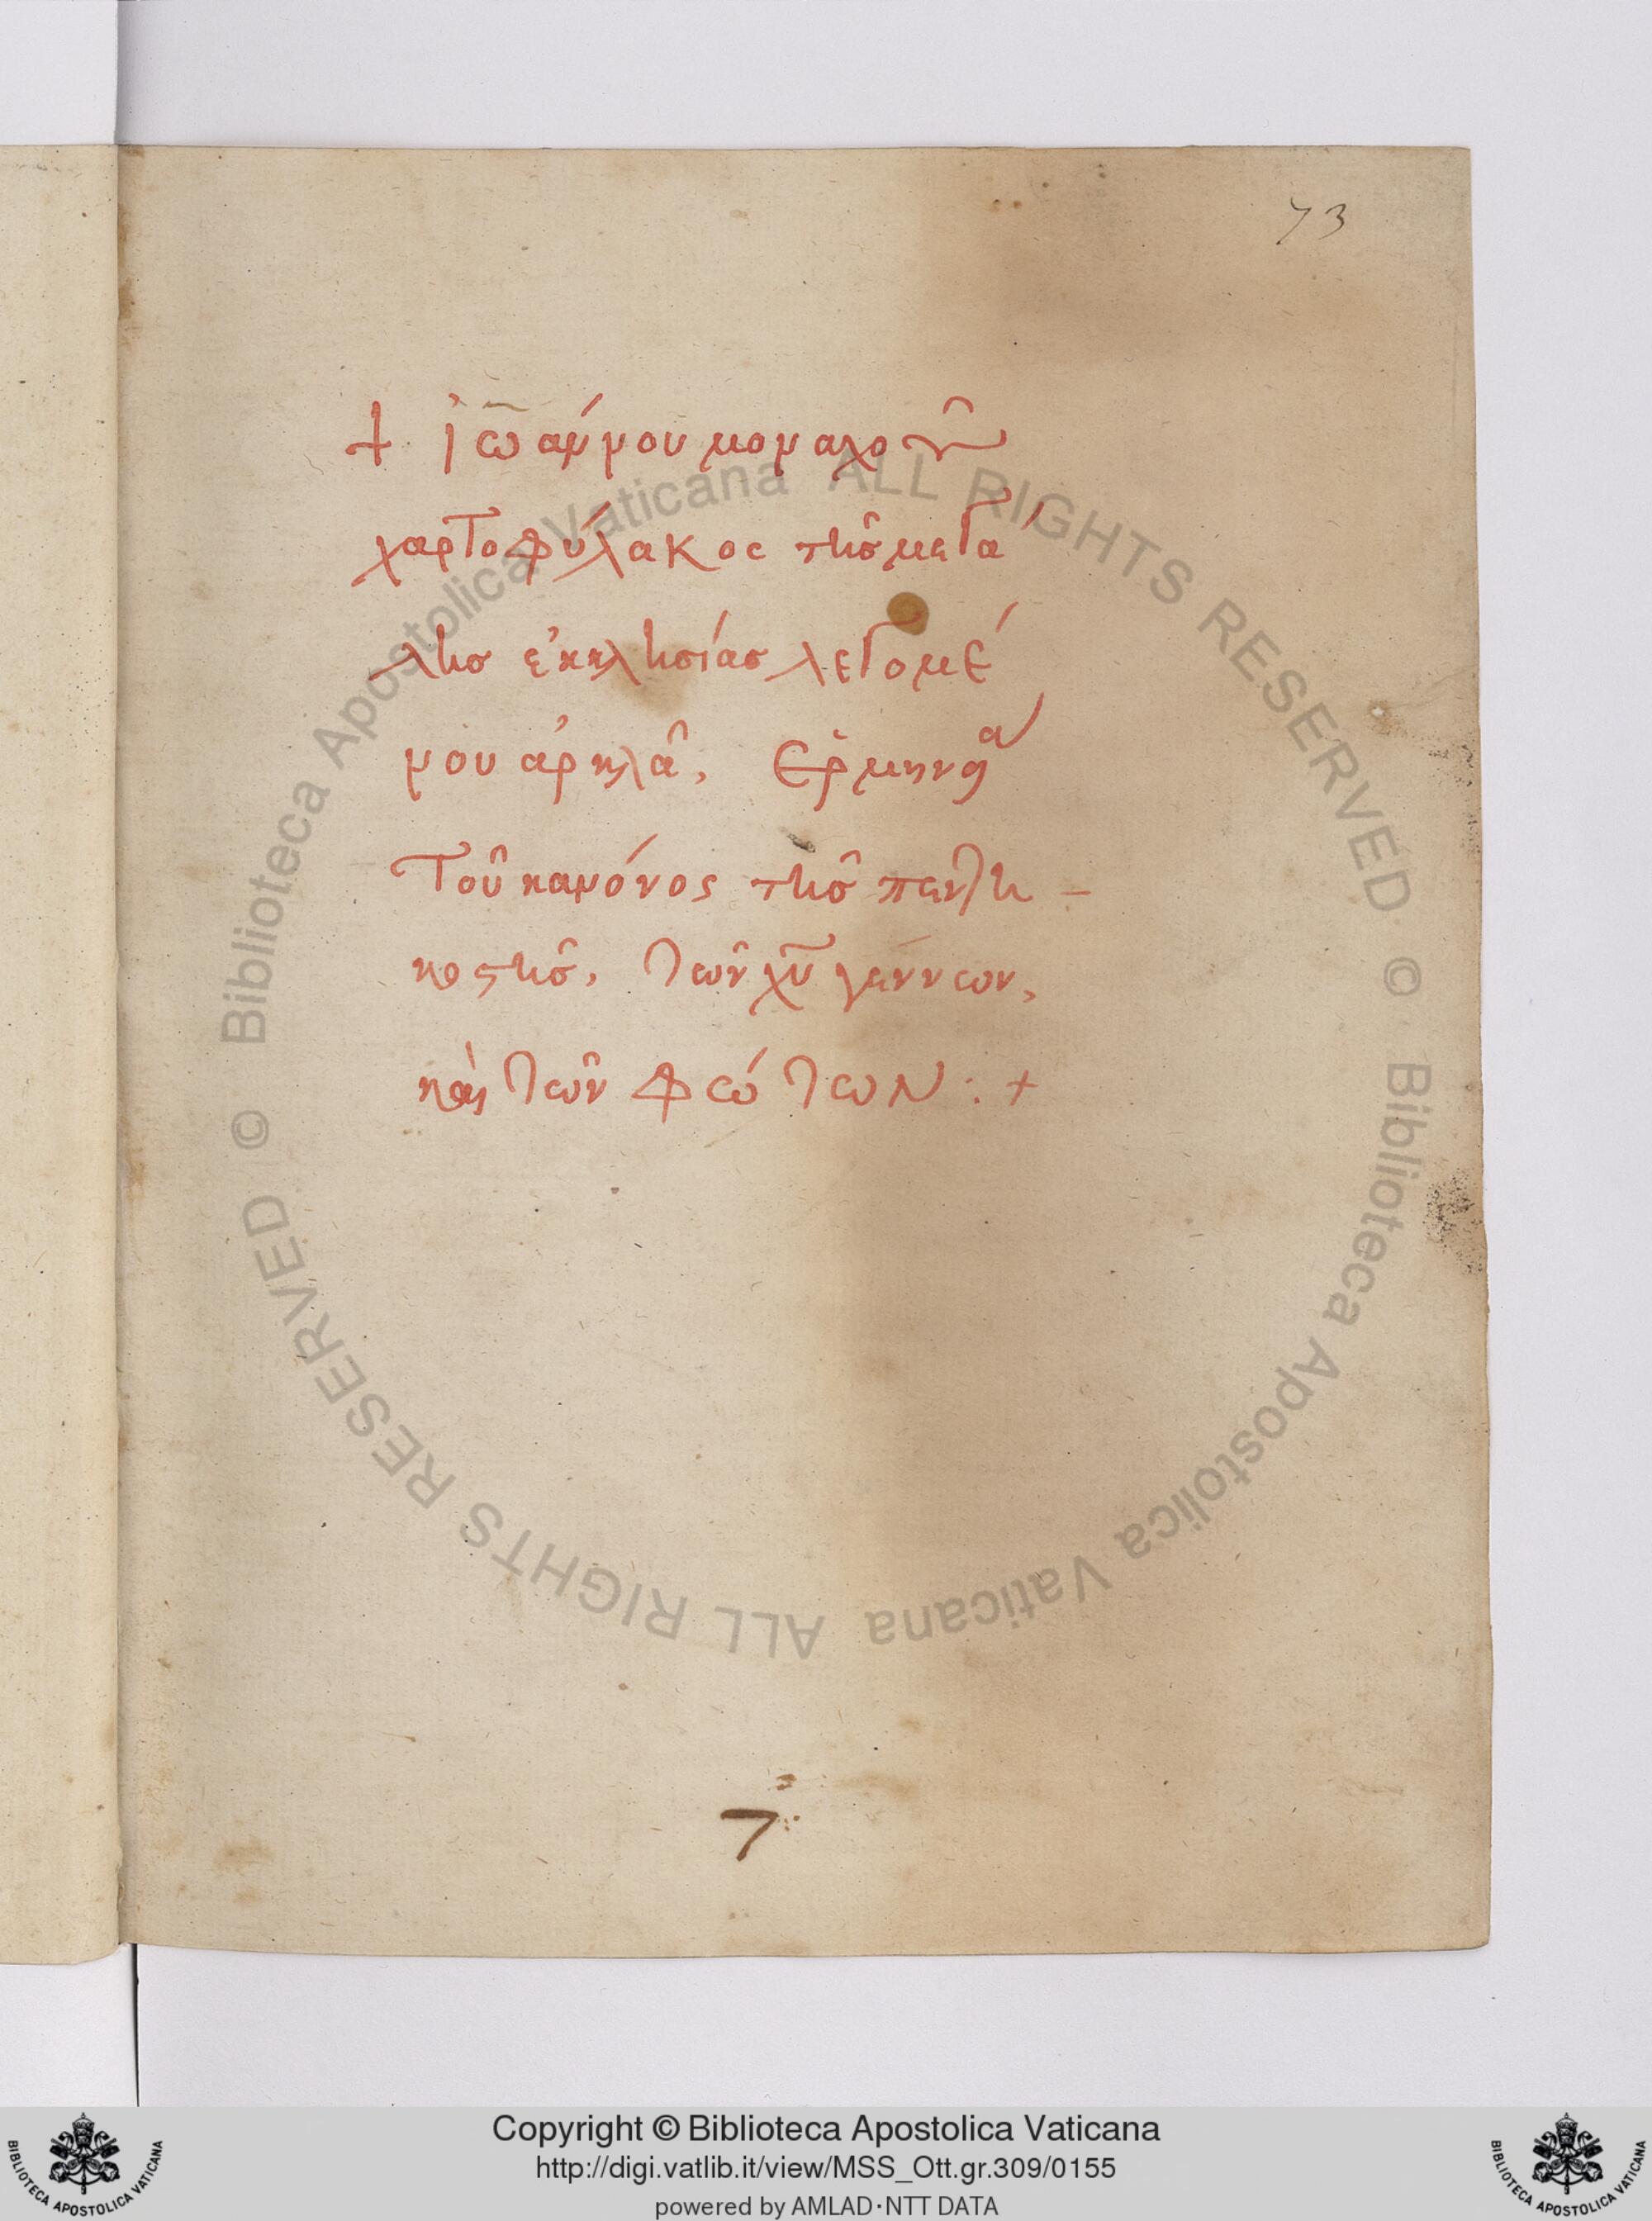 73
+ ἰωάννου μοναχοῦ
χαρτοφύλακος τῆς μεγά
λης ἐκκλησίας λεγομέ
νου ἀρκλᾶ, Ἑρμηνεία
Τοῦ κανόνος τῆς πεντη-
κοστῆς, τῶν χῦ γέννων,
καὶ τῶν φώτων : +
7
© Biblioteca Apostolica Vaticana ALL RIGHTS RESERVED
© Biblioteca Apostolica Vaticana ALL RIGHTS RESERVED
Copyright © Biblioteca Apostolica Vaticana
http://digi.vatlib.it/view/MSS_Ott.gr.309/0155
powered by AMLAD·NTT DATA
BIBLIOTECA APOSTOLICA VATICANA
BIBLIOTECA APOSTOLICA VATICANA